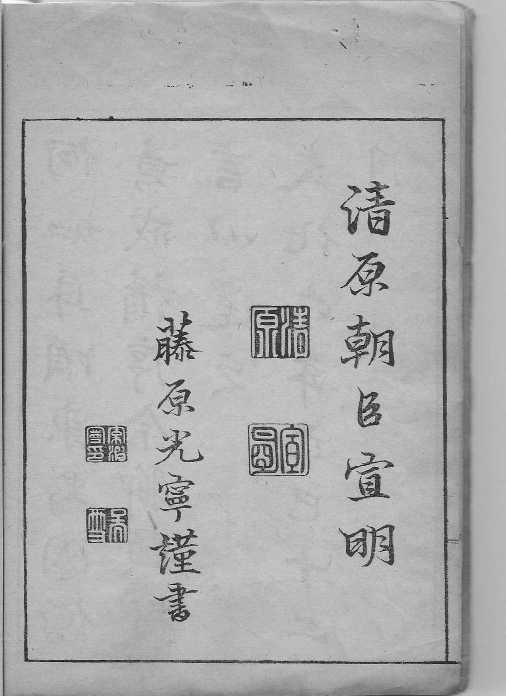 清原朝臣宣明
清原
宣明
藤原光寧謹書